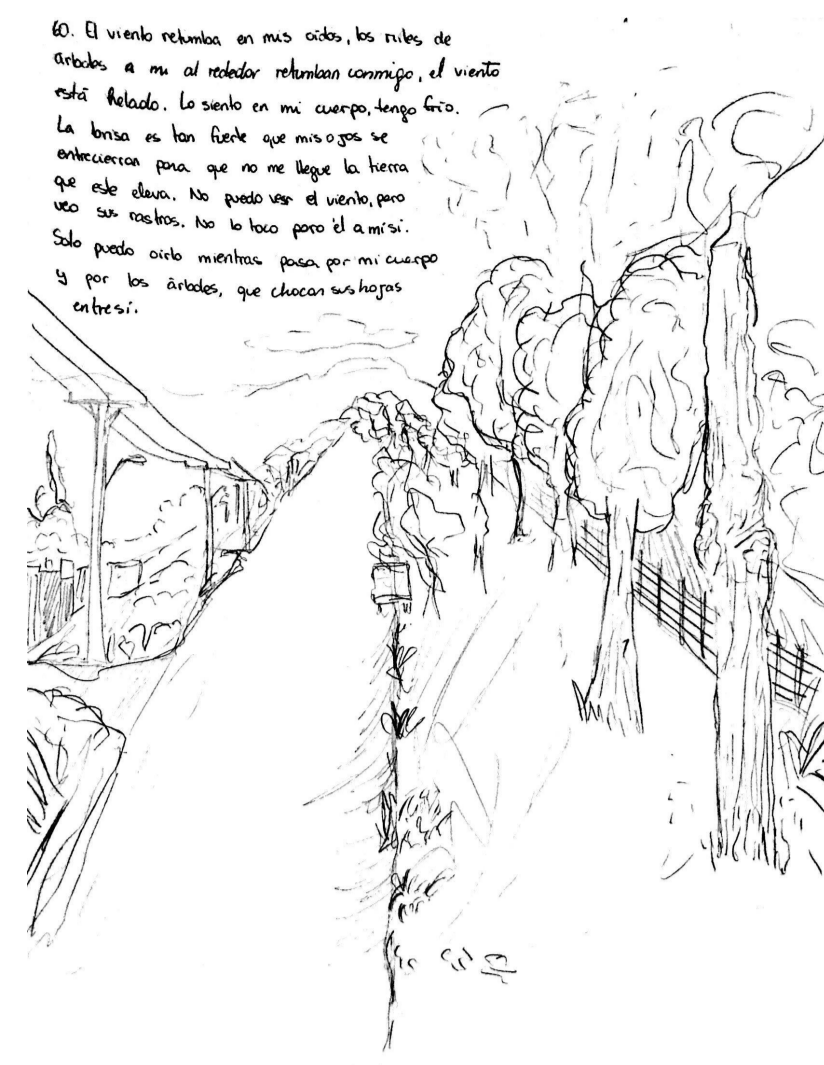 60. El viento retumba en mis oidos, los miles de
árboles a mi al rededor retumban conmigo, el viento
está helado. Lo siento en mi cuerpo, tengo frio.
La brisa es tan fuerte que mis ojos se
entrecierran para que no me llegue la tierra
que este eleva. No puedo ver el viento, pero
veo sus rastros. No lo toco pero él a mi sí.
Solo puedo oirlo mientras pasa por mi cuerpo
y por los árboles, que chocan sus hojas
entre sí.